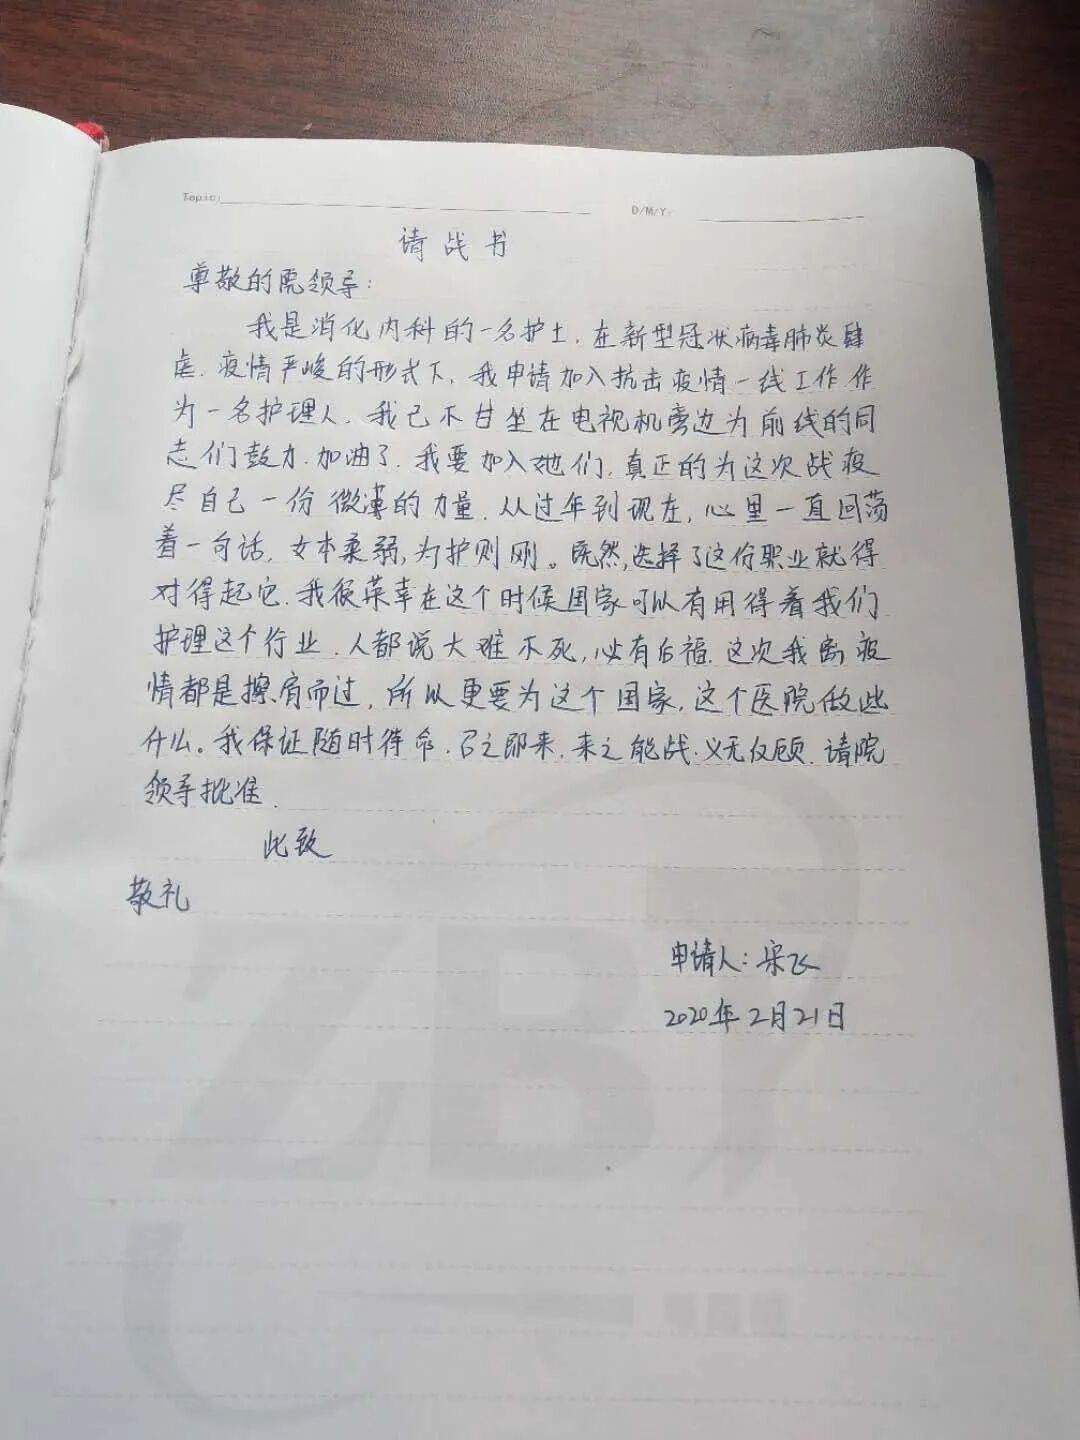 Topic:
D/M/Y:
请战书
尊敬的院领导:
我是消化内科的一名护士.在新型冠状病毒肺炎肆
虐.疫情严峻的形式下,我申请加入抗击疫情一线工作作
为一名护理人,我已不甘坐在电视机旁边为前线的同
志们鼓力.加油了.我要加入她们.真正的为这次战疫
尽自己一份微薄的力量.从过年到现在,心里一直回荡
着一句话,女本柔弱,为护则刚。既然,选择了这份职业就得
对得起它.我很荣幸在这个时候国家可以有用得着我们
护理这个行业.人都说大难不死,必有后福.这次我离疫
情都是擦肩而过,所以更要为这个国家,这个医院做些
什么。我保证随时待命.召之即来.来之能战.义无反顾.请院
领导批准.
此致
敬礼
申请人:宋飞
2020年2月21日
ZB